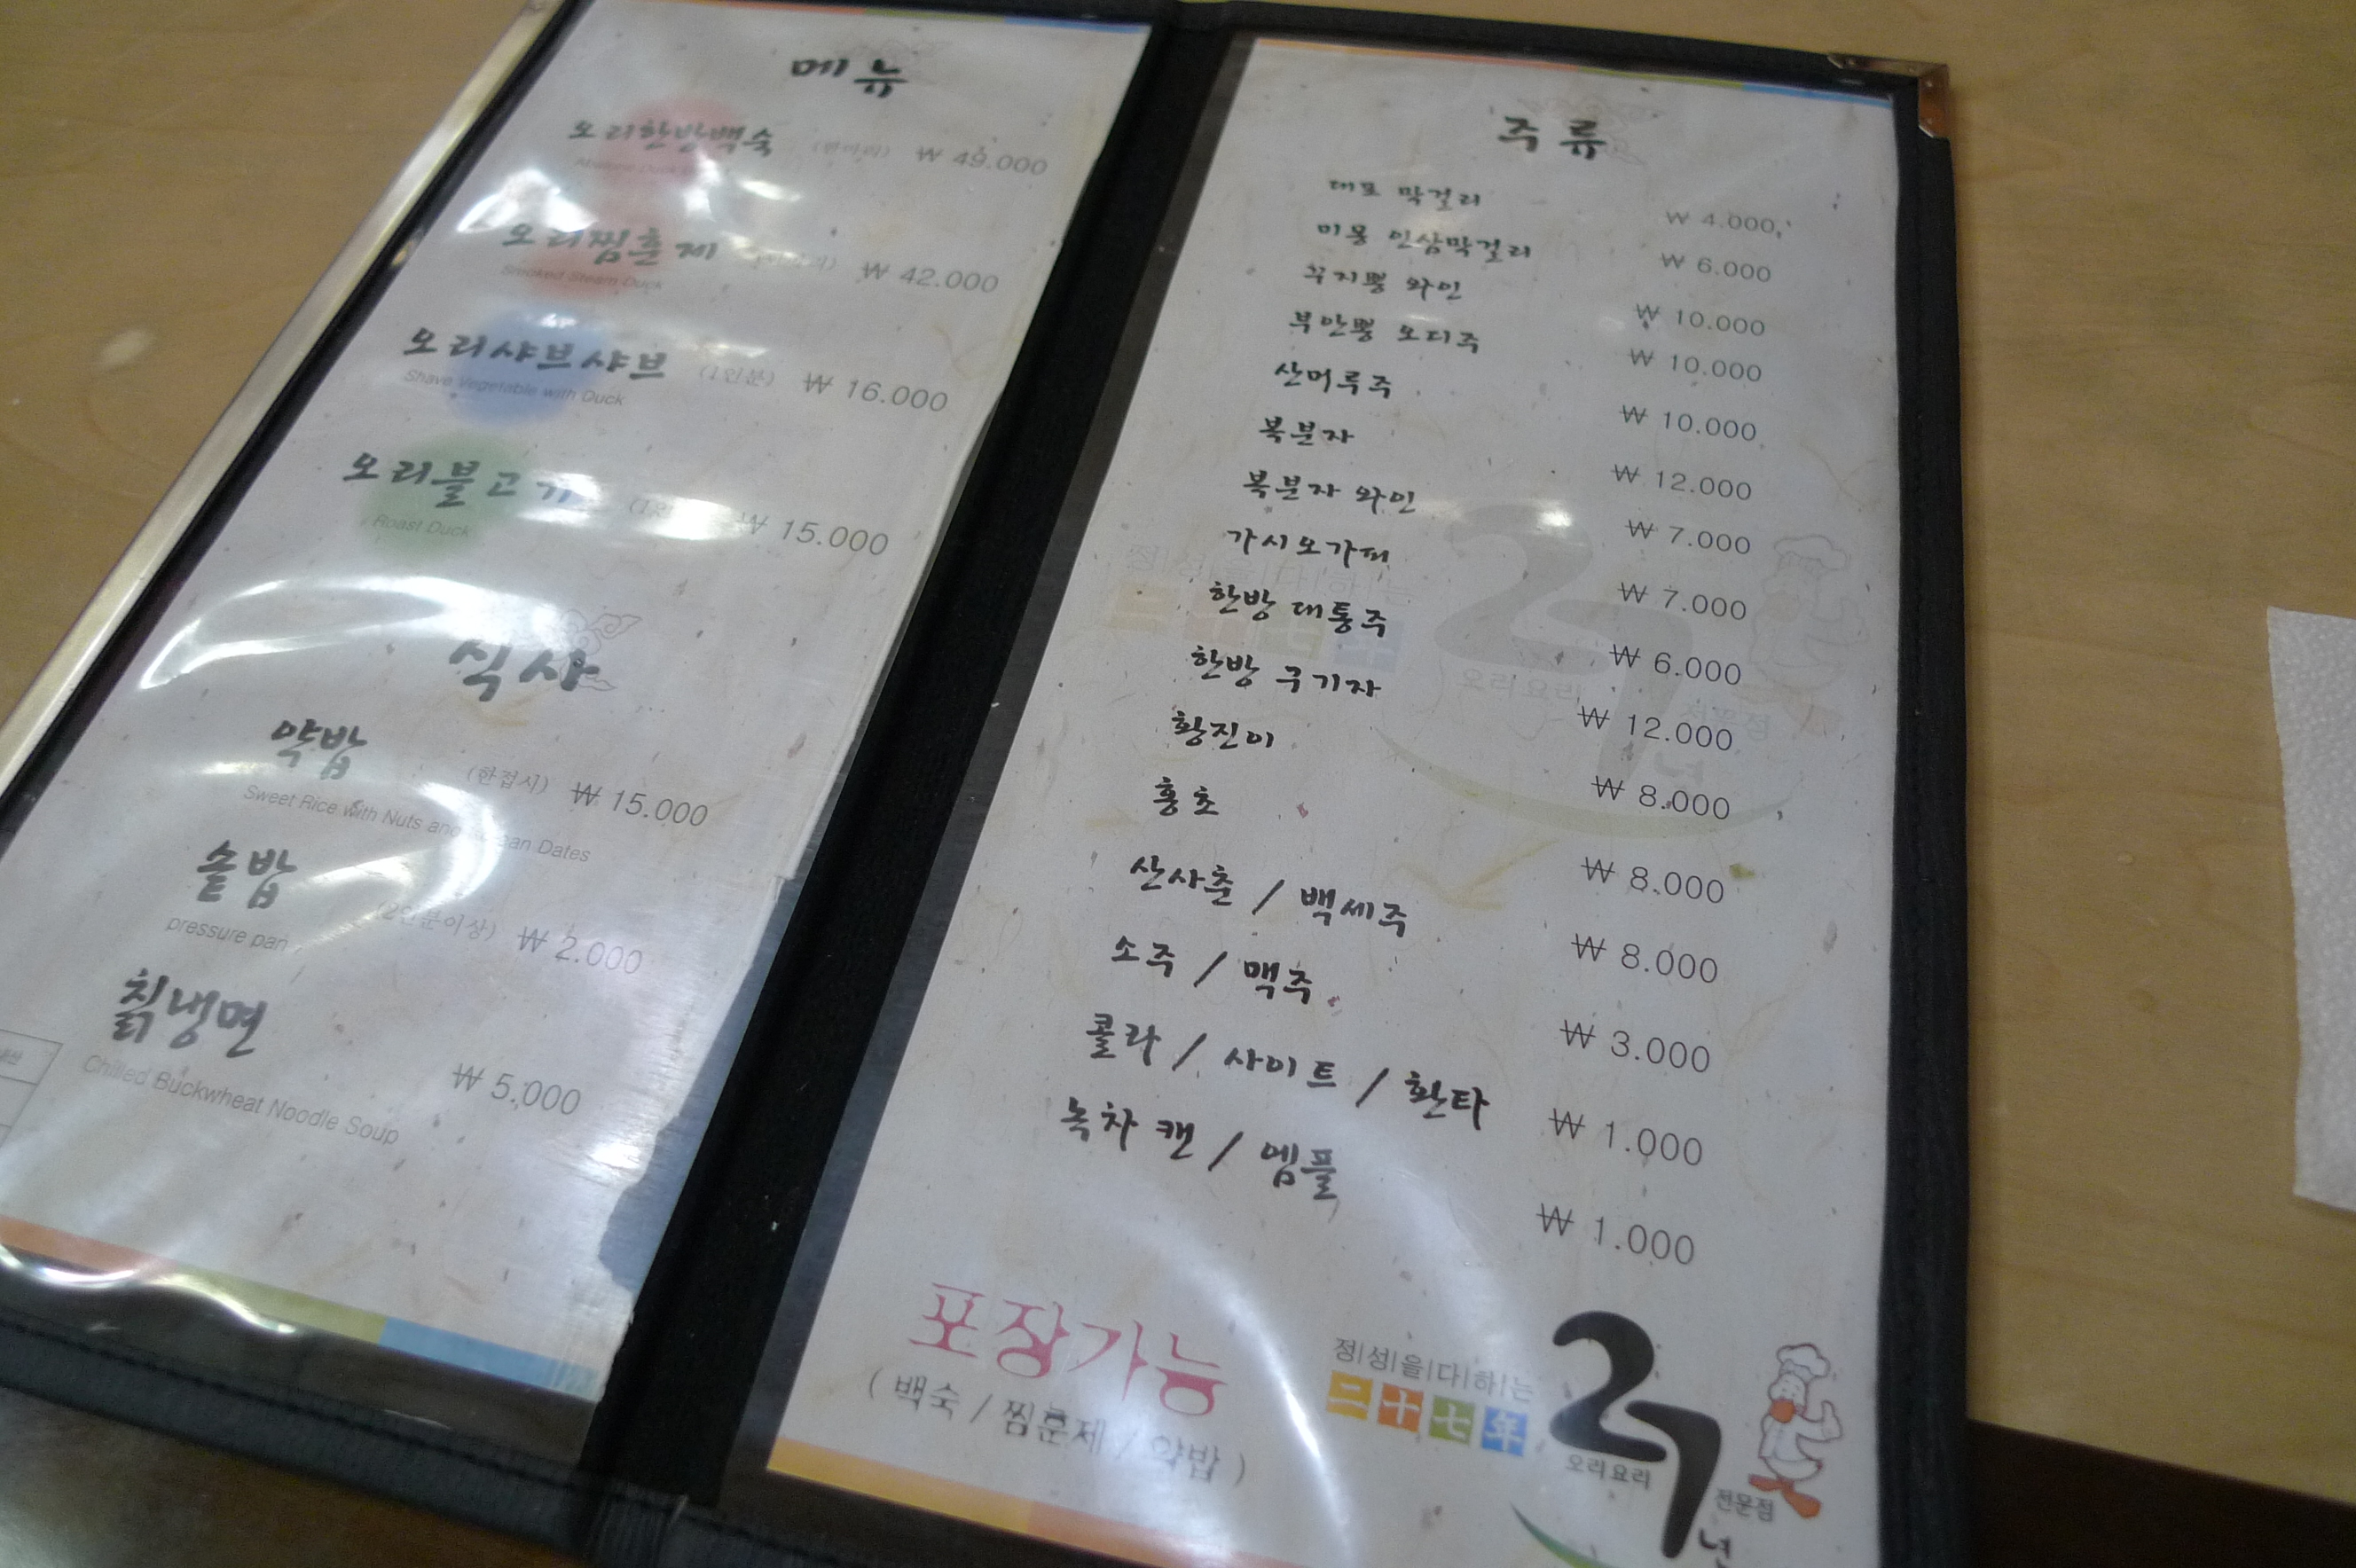 메뉴
오리한방백숙 (한마리) ₩ 49.000
오리찜훈제 ₩ 42.000
Smoked Steam Duck
오리샤브샤브 (1인분) ₩ 16.000
Shave Vegetable with Duck
오리불고기 ₩ 15.000
Roast Duck
식사
약밥 (한접시) ₩ 15.000
Sweet Rice with Nuts and Dates
솥밥 (2인분이상) ₩ 2.000
pressure pan
칡냉면 ₩ 5.000
Chilled Buckwheat Noodle Soup
주류
대포 막걸리 ₩ 4.000
미몽 인삼막걸리 ₩ 6.000
꾸지뽕 와인 ₩ 10.000
부안뽕 오디주 ₩ 10.000
산머루주 ₩ 10.000
복분자 ₩ 12.000
복분자 와인 ₩ 7.000
가시오가피 ₩ 7.000
한방 대통주 ₩ 6.000
한방 구기자 ₩ 12.000
황진이 ₩ 8.000
홍초 ₩ 8.000
산사춘 / 백세주 ₩ 8.000
소주 / 맥주 ₩ 3.000
콜라 / 사이트 / 환타 ₩ 1.000
녹차 캔 / 엠플 ₩ 1.000
포장가능
( 백숙 / 찜훈제 / 약밥 )
정|성|을|다|하|는
二十七年
27년
오리요리
전문점